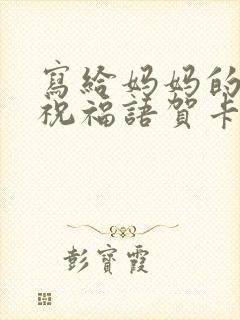 寫給妈妈的
祝福語賀卡
彭寶霞